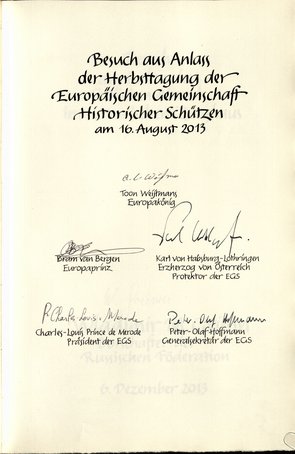 Besuch aus Anlass
der Herbsttagung der
Europäischen Gemeinschaft
Historischer Schützen
am 16. August 2013
Toon Weijtmans
Europakönig
Bram van Bergen
Europaprinz
Karl von Habsburg-Lothringen
Erzherzog von Österreich
Protektor der EGS
P. Charles Louis. Merode
Charles-Louis Prince de Merode
Präsident der EGS
Peter-Olaf Hoffmann
Peter-Olaf Hoffmann
Generalsekretär der EGS
Russischen Föderation
6. Dezember 2013